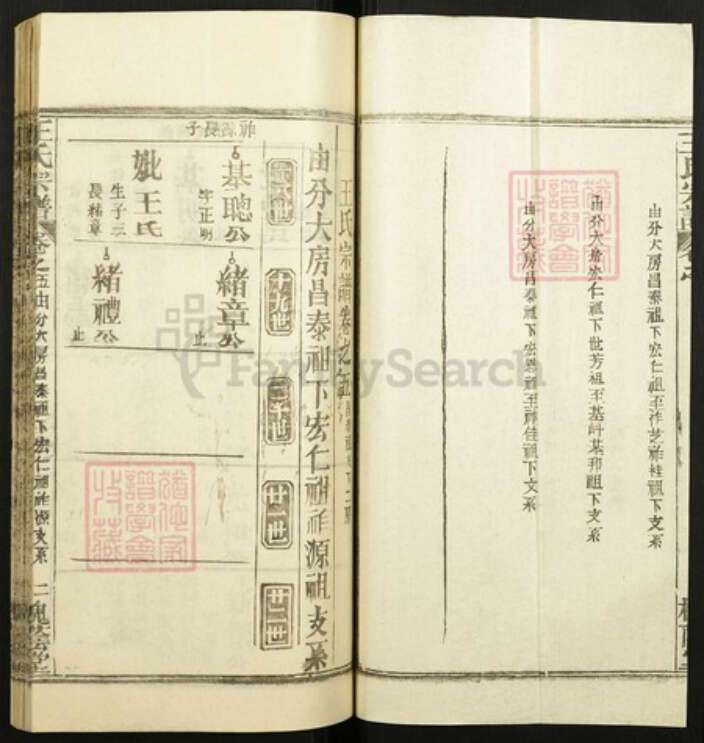 由分大房昌泰祖下宏仁祖至祚芝祚桂祖下支系
由分大房宏仁祖下世芳祖至基 基邦祖下支系
由分大房昌泰祖下宏恩祖至祚佳祖下文系
王氏宗譜卷之五
由分大房昌泰祖下宏仁祖祚源祖支系
十九世
二十世
廿一世
廿二世
祚源長子
基聰公
字正明
妣王氏
生子二
長緒章
緒章公
止
緒禮公
止
王氏宗譜
卷之五由分大房昌泰祖下宏仁祖祚源支系
二
槐蔭堂
FamilySearch